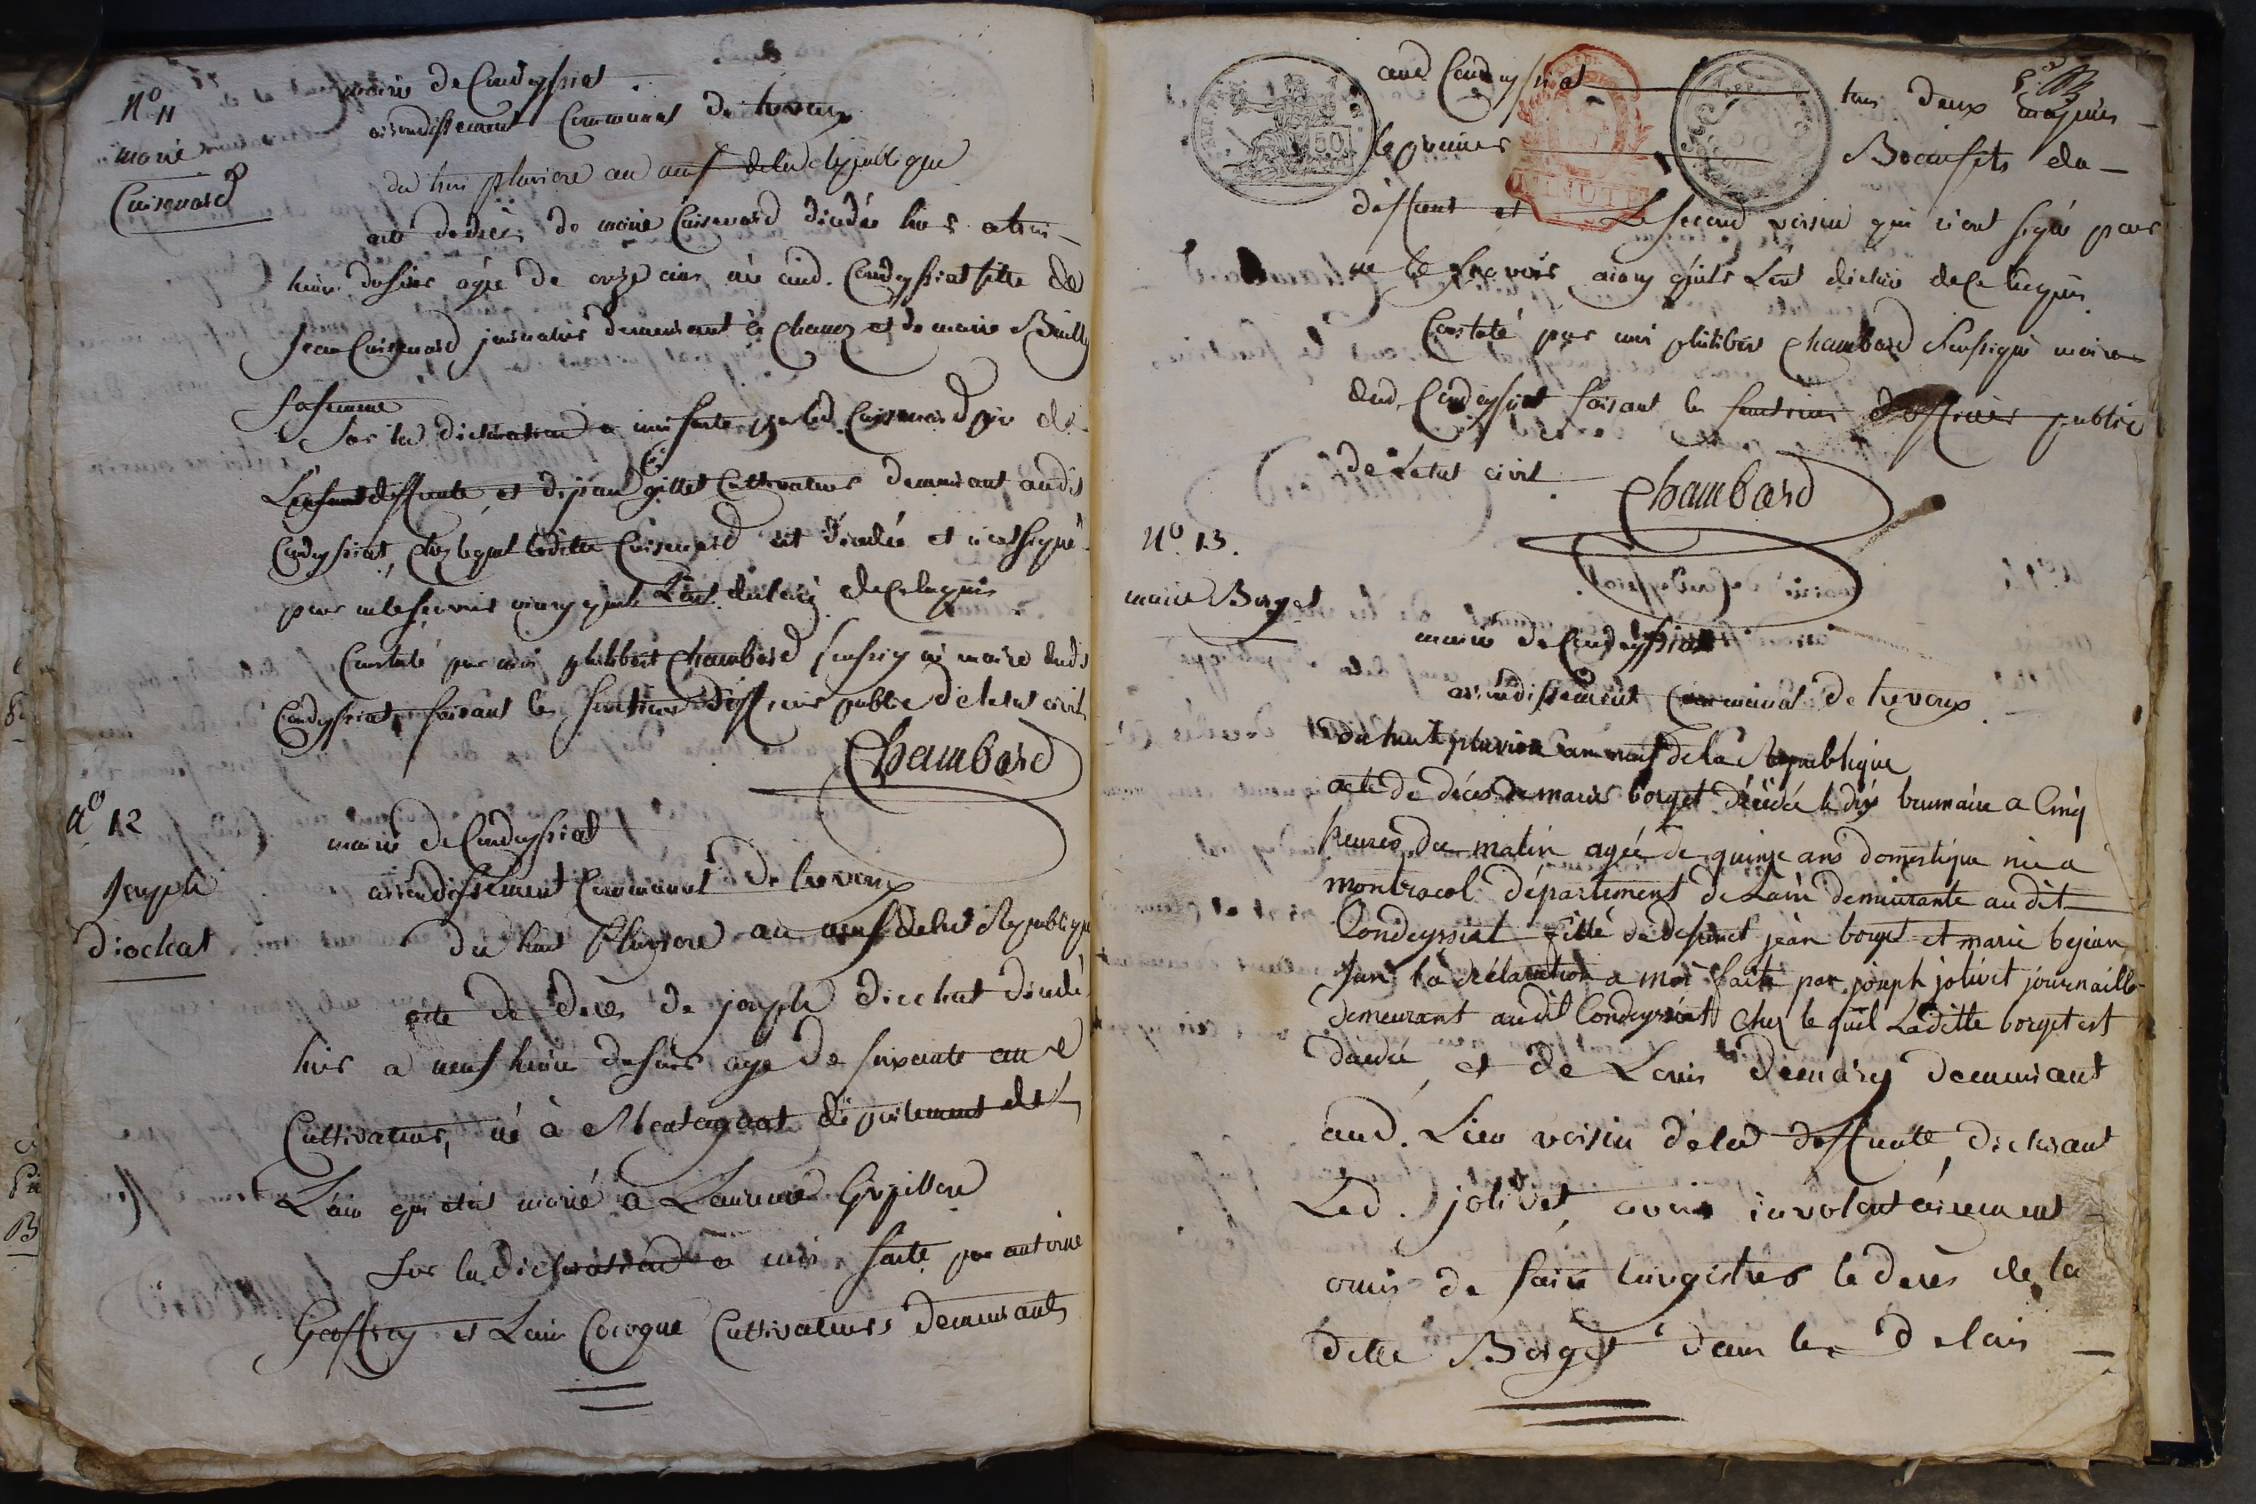 N° 11
marie
Cuisenard
mairie de Condeyssiat
arrondissement Communal de trevoux
du huit pluviose an neuf de la republique
acte de décès de marie Cuisenard décédée hier a trois
heures du soir agée de onze ans née aud. Condeyssiat fille de
jean Cuisenard journalier demeurant à Chanoz et de marie Bailly
sa femme
Sur la declaration a moi faite par led. Cuisenard pere de
L'enfant deffunte et de jean gillet Cultivateur demeurant audit
Condeyssiat, chez lequel ladite Cuisenard est décédée et n'ont signé
pour ne le savoir ainsy quils l'ont declaré de ce requis
Constaté par moi philibert Chambard soussigné maire dudt
Condeyssiat, faisant les fonctions d'officier public de letat civil
Chambard
N° 12
joseph
diochat
mairie de Condeyssiat
arrondissement Communal de trevoux
du huit Pluviose an neuf de la Republique
acte de décès de joseph diochat décédé
hier a neuf heures du soir age de soixante ans
Cultivateur, né à département de
L'ain qui etait marié a Laurence
Sur la declaration a moi faite par antoine
Geoffray et Louis Cocogne Cultivateurs demeurants
aud Condeyssiat tous deux majeurs
le premier Beaufils du
deffunt et Le second voisin qui n'ont signé pour
ne le savoir ainsy quils l'ont declaré de ce requis
Constaté par moi philibert Chambard soussigné maire
dud. Condeyssiat faisant les fonctions d'officier public
de letat civil.
Chambard
N° 13.
marie Borget
mairie de Condeyssiat
arrondissement Communal de trevoux
du huit pluviose an neuf de la Republique
acte de décès de marie borget décédée le dix brumaire a Cinq
heures du matin agée de quinze ans domestique née a
montracol département de Lain demeurante audit
Condeyssiat fille de defunct jean borget et marie bejean
sur la déclaration a moi faite par joseph jolivet journaillé
demeurant audit Condeyssiat chez le quel Laditte borget est
décédée, et de Louis demary demeurant
aud. Lieu voisin de lad deffunte, declarant
Led. jolivet, avoir involontairement
omis de faire enregistrer le deces de la
ditte Borget dans les delais